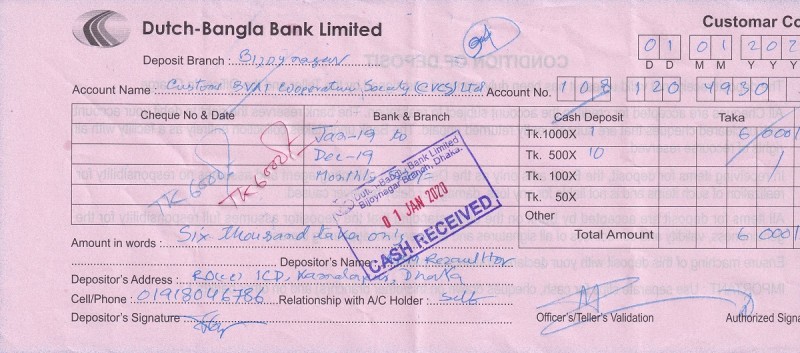 Dutch-Bangla Bank Limited
Customar Co
Deposit Branch : Bijoynagar
01 01 202
D D M M Y Y Y
Account Name : Custom & VAT Cooperative Society (CVCS) Ltd
Account No. 108 120 4930
Cheque No & Date Bank & Branch Cash Deposit Taka
Jan-19 to Tk. 1000X 1 6 000/
Dec-19 Tk. 500X 10
Monthly Tk. 100X 1
Tk 6000/- Tk 6000/-
Tk. 50X
Other
Dutch-Bangla Bank Limited
Bijoynagar Branch, Dhaka.
01 JAN 2020
CASH RECEIVED
Total Amount 6 000/
Amount in words : Six thousand taka only
Depositor's Name : Rezaul Hoq
Depositor's Address : ICD, Kamalapur, Dhaka
Cell/Phone : 01918046786 Relationship with A/C Holder : self
Depositor's Signature
Officer's/Teller's Validation
Authorized Signa